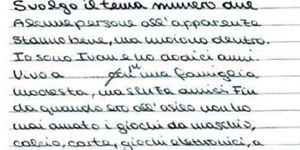 Svolgo il tema numero due
Alcune persone all'apparenza
stanno bene, ma muoiono dentro.
Io sono Ivan e ho dodici anni.
Vivo a in una famiglia
modesta, ma senza amici. Fin
da quando ero all'asilo non ho
mai amato i giochi da maschi,
calcio, carte, giochi elettronici, a